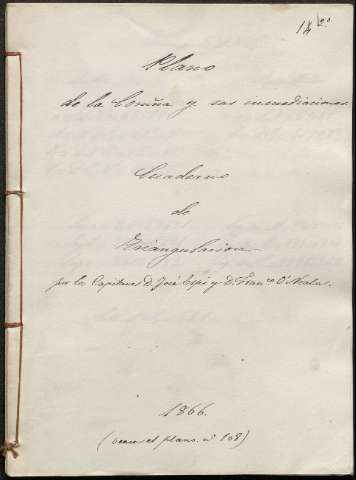 Plano
de la Coruña y sus inmediaciones
Cuaderno
de
Triangulacion
por los Capitanes D. José y D. Franco O'
1866.
(vease el plano nº 168)